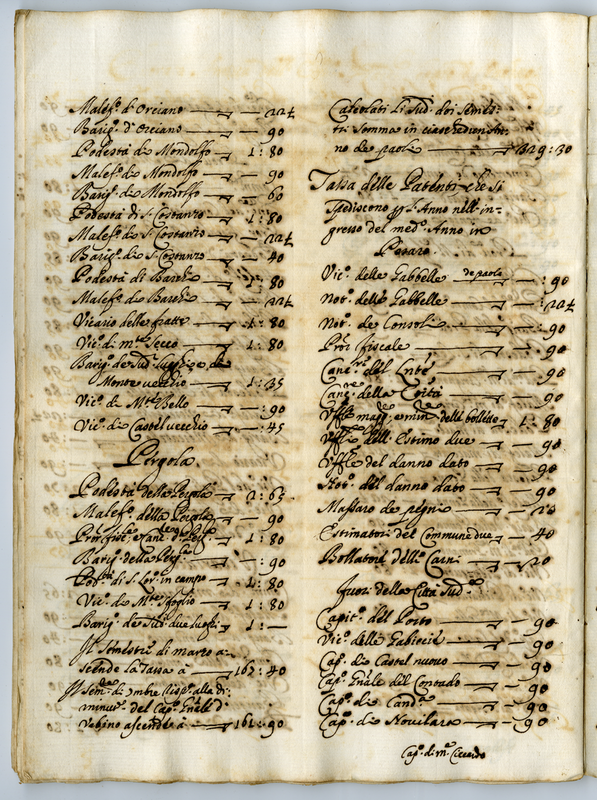 Malef.º d'Orciano — 22½
Barig.º d'Orciano — 90
Podestà di Mondolfo — 1:80
Malef.º di Mondolfo — 90
Barig.º di Mondolfo — 60
Podestà di S. Costanzo — 1:80
Malef.º di S. Costanzo — 22½
Barig.º di S. Costanzo — 40
Podestà di Barchi — 1:80
Malef.º di Barchi — 22½
Vicario delle fratte — 1:80
Vic.º di m.te Secco — 1:80
Barig.º de Sud.i luoghi e de
Monte vecchio — 1:35
Vic.º di M.te Bello — :90
Vic.º di Castel vecchio — :45
Pergola.
Podestà della Pergola — 2:63
Malef.º della Pergola — 90
Proc.r fisc.e e Canc.re d.ª Perg.ª — 1:80
Barig.º della Perg.ª — :90
Pod.tà di S. Lor.º in campo — 1:80
Vic.º di M.te — 1:80
Barig.º de Sud.i due luoghi — 1:—
Il Semestre di marzo a-
scende la Tassa à — 167:40
Il Sem.re di 7mbre risp.º alla di-
minuz.e del Cap.º Gnale d'
Urbino ascende à — 161:90
Calcolati li Sud.i doi Semes-
tri Somma in ciascedun An-
no de paoli — 329:30
Tassa delle Patenti che si
Spediscono p s. Anno nell'in-
gresso del med.º Anno in
Pesaro.
Vic.º delle Gabbelle de paoli — :90
Not.º delle Gabbelle — :22½
Not.º de Consoli — :90
Proc.r fiscale — :90
Canc.re dell' — 90
Canc.re della Città — 90
Uff.le magg.re e min.re delle bollette — 1:80
Uff.li dell'Estimo due — 90
Uff.le del danno dato — 90
Not.º del danno dato — 90
Massaro de pegni — 20
Estimatori del Commune due — 40
Bollatore delle Carni — 20
fuori della Città Sud.ª
Capit.º del Porto — 90
Vic.º delle Gabiccie — 90
Cap.º di Castel nuovo — 90
Cap.º Gnale del Contado — 90
Cap.º di Cand.ra — 90
Cap.º di Novilara — 90
Cap.º di m.te Ciccardo